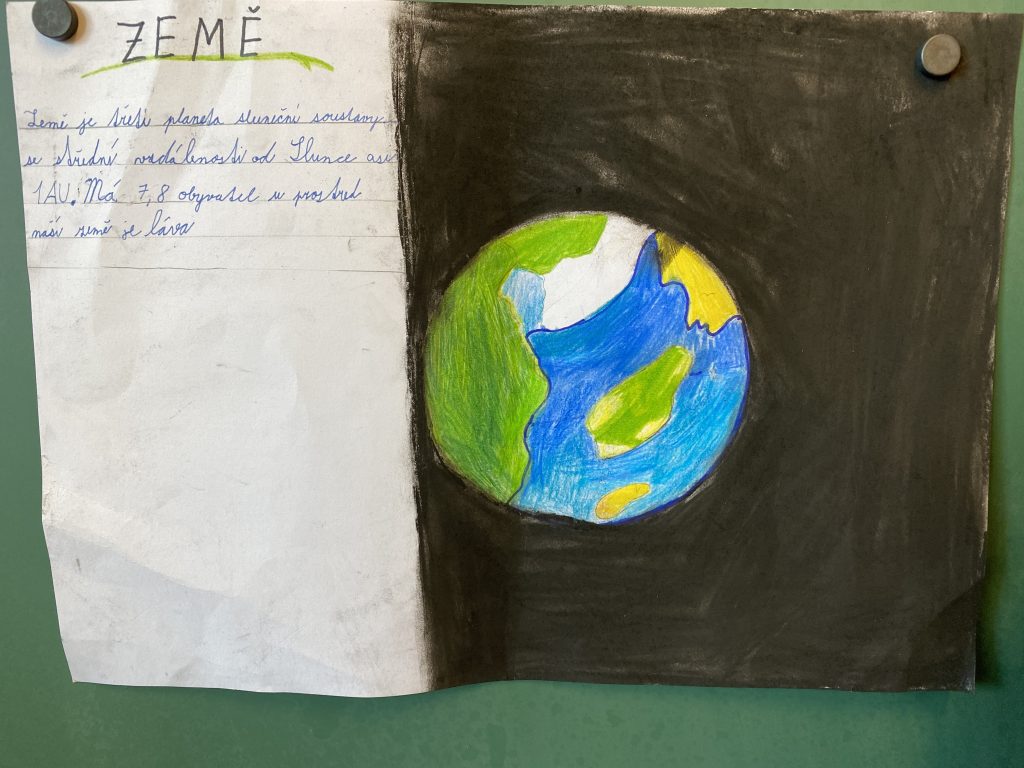 ZEMĚ
Země je třetí planeta sluneční soustavy
se střední vzdáleností od Slunce asi
1AU. Má 7,8 obyvatel u prostřed
naší země je láva